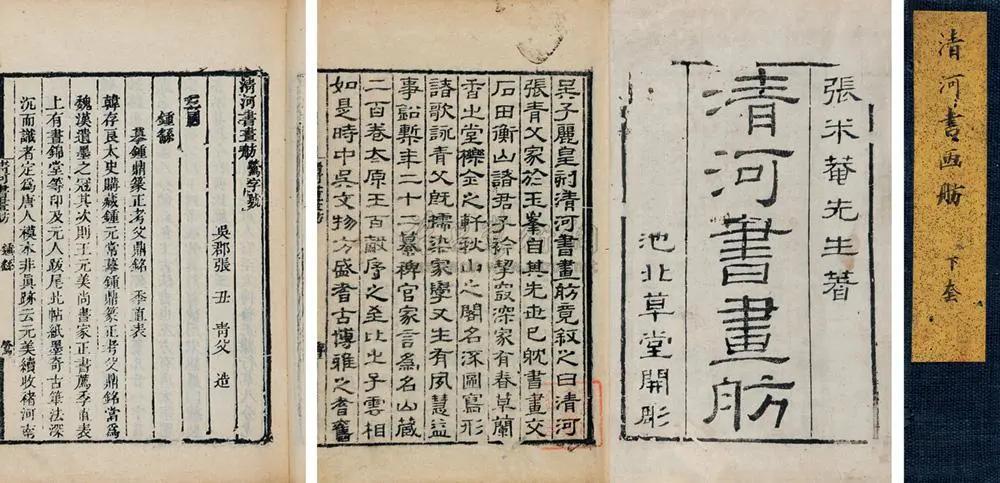 清河書画舫 下套
張米菴先生著
清河書畫舫
池北草堂開彫
吴子麗皇刻清河書畫舫竟叙之曰清河
張青父家於玉峯自其先世已躭書畫交
石田衡山諸君子袗契寂深家有春草蘭
香之堂櫟金之軒秋山之閣名流圖寫形
諸歌詠青父旣擩染家學又生有夙慧益
事鉛槧年二十二纂稗官家言為名山藏
二百卷太原王百穀序之至比之子雲相
如是時中吳文物方盛耆古博雅之耆舊
清河書畫舫 鶯字號
吳郡張 丑 青父 造
鍾繇
摹鍾鼎篆正考父鼎銘 季直表
韓存良太史購藏鍾元常摹鍾鼎篆正考父鼎銘當為
魏漢遺墨之冠其次則王元美尚書家正書薦季直表
上有書錦堂等印及元人跋尾北帖紙墨奇古筆法深
沉而識者定為唐人模本非眞跡云元美續收褚河南